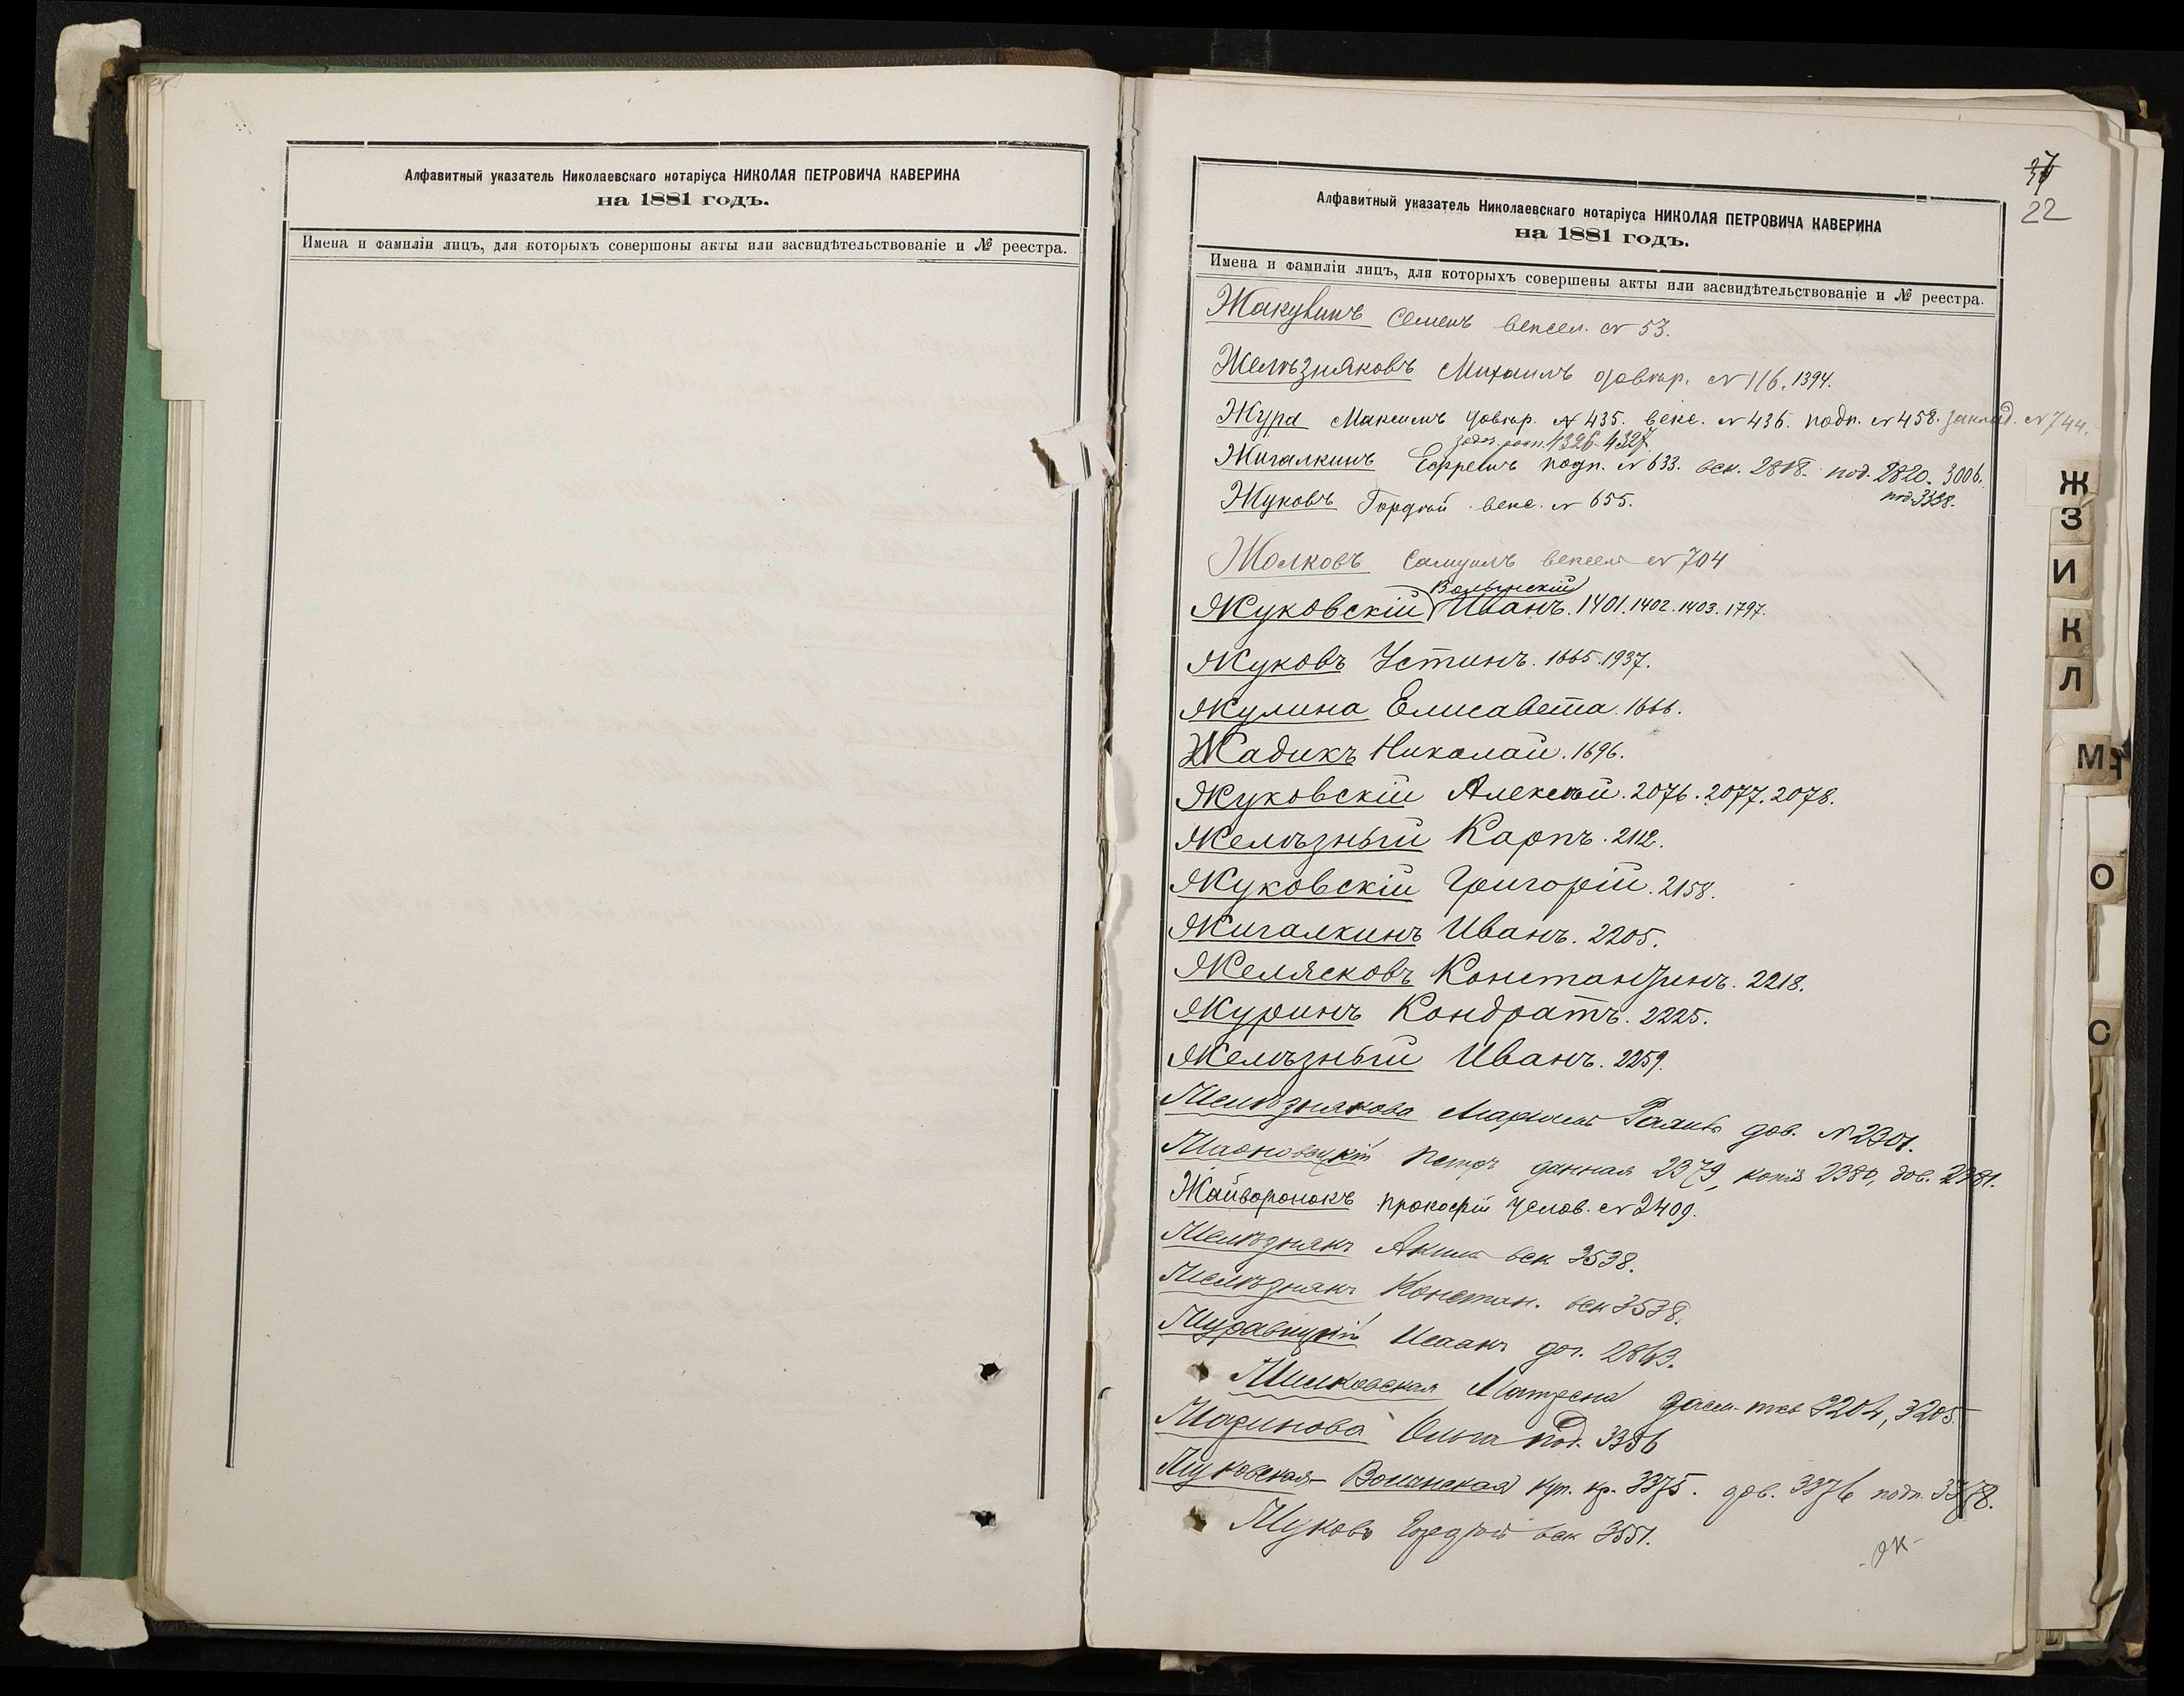 Алфавитный указатель Николаевскаго нотаріуса НИКОЛАЯ ПЕТРОВИЧА КАВЕРИНА
на 1881 годъ.
Имена и фамиліи лицъ, для которыхъ совершоны акты или засвидѣтельствованіе и № реестра.
22
Алфавитный указатель Николаевскаго нотаріуса НИКОЛАЯ ПЕТРОВИЧА КАВЕРИНА
на 1881 годъ.
Имена и фамиліи лицъ, для которыхъ совершены акты или засвидѣтельствованіе и № реестра.
Жакувинъ Семенъ вексел. № 53.
Желѣзняковъ Михаилъ довѣр. № 116. 1394.
Жура Максимъ довѣр. № 435. векс. № 436. подп. № 458. заклад. № 744.
4326. 4327.
Жигалкинъ Ефремъ подп. № 633. век. 2818. под. 2820. 3006.
под. 3338.
Жуковъ Гордѣй векс. № 655.
Жолковъ Самуилъ вексел № 704
Волынскій
Жуковскій Иванъ. 1401. 1402. 1403. 1797.
Жуковъ Устинъ. 1665. 1937.
Жулина Елисавета. 1666.
Жадикъ Николай. 1696.
Жуковскій Алексѣй. 2076. 2077. 2078.
Желѣзный Карпъ. 2112.
Жуковскій Григорій. 2158.
Жигалкинъ Иванъ. 2205.
Желясковъ Константинъ. 2218.
Журинъ Кондратъ. 2225.
Желѣзный Иванъ. 2259.
Желѣзнякова дов. № 2301.
Петръ данная 2379, копія 2380, дов. 2381.
Жайворонокъ Прокофій услов. № 2409.
Желѣзнякъ Акимъ век 3538.
Желѣзнякъ Констан. век 3538.
Журавицкій Исаакъ дог. 2863.
Матрена 3204, 3205
Жаринова Ольга под. 3356
Жуковская-Волынская куп. кр. 3375. дов. 3376 подп. 3378.
Жуковъ Гордѣй век 3551.
Ж
З
И
К
Л
М
О
С